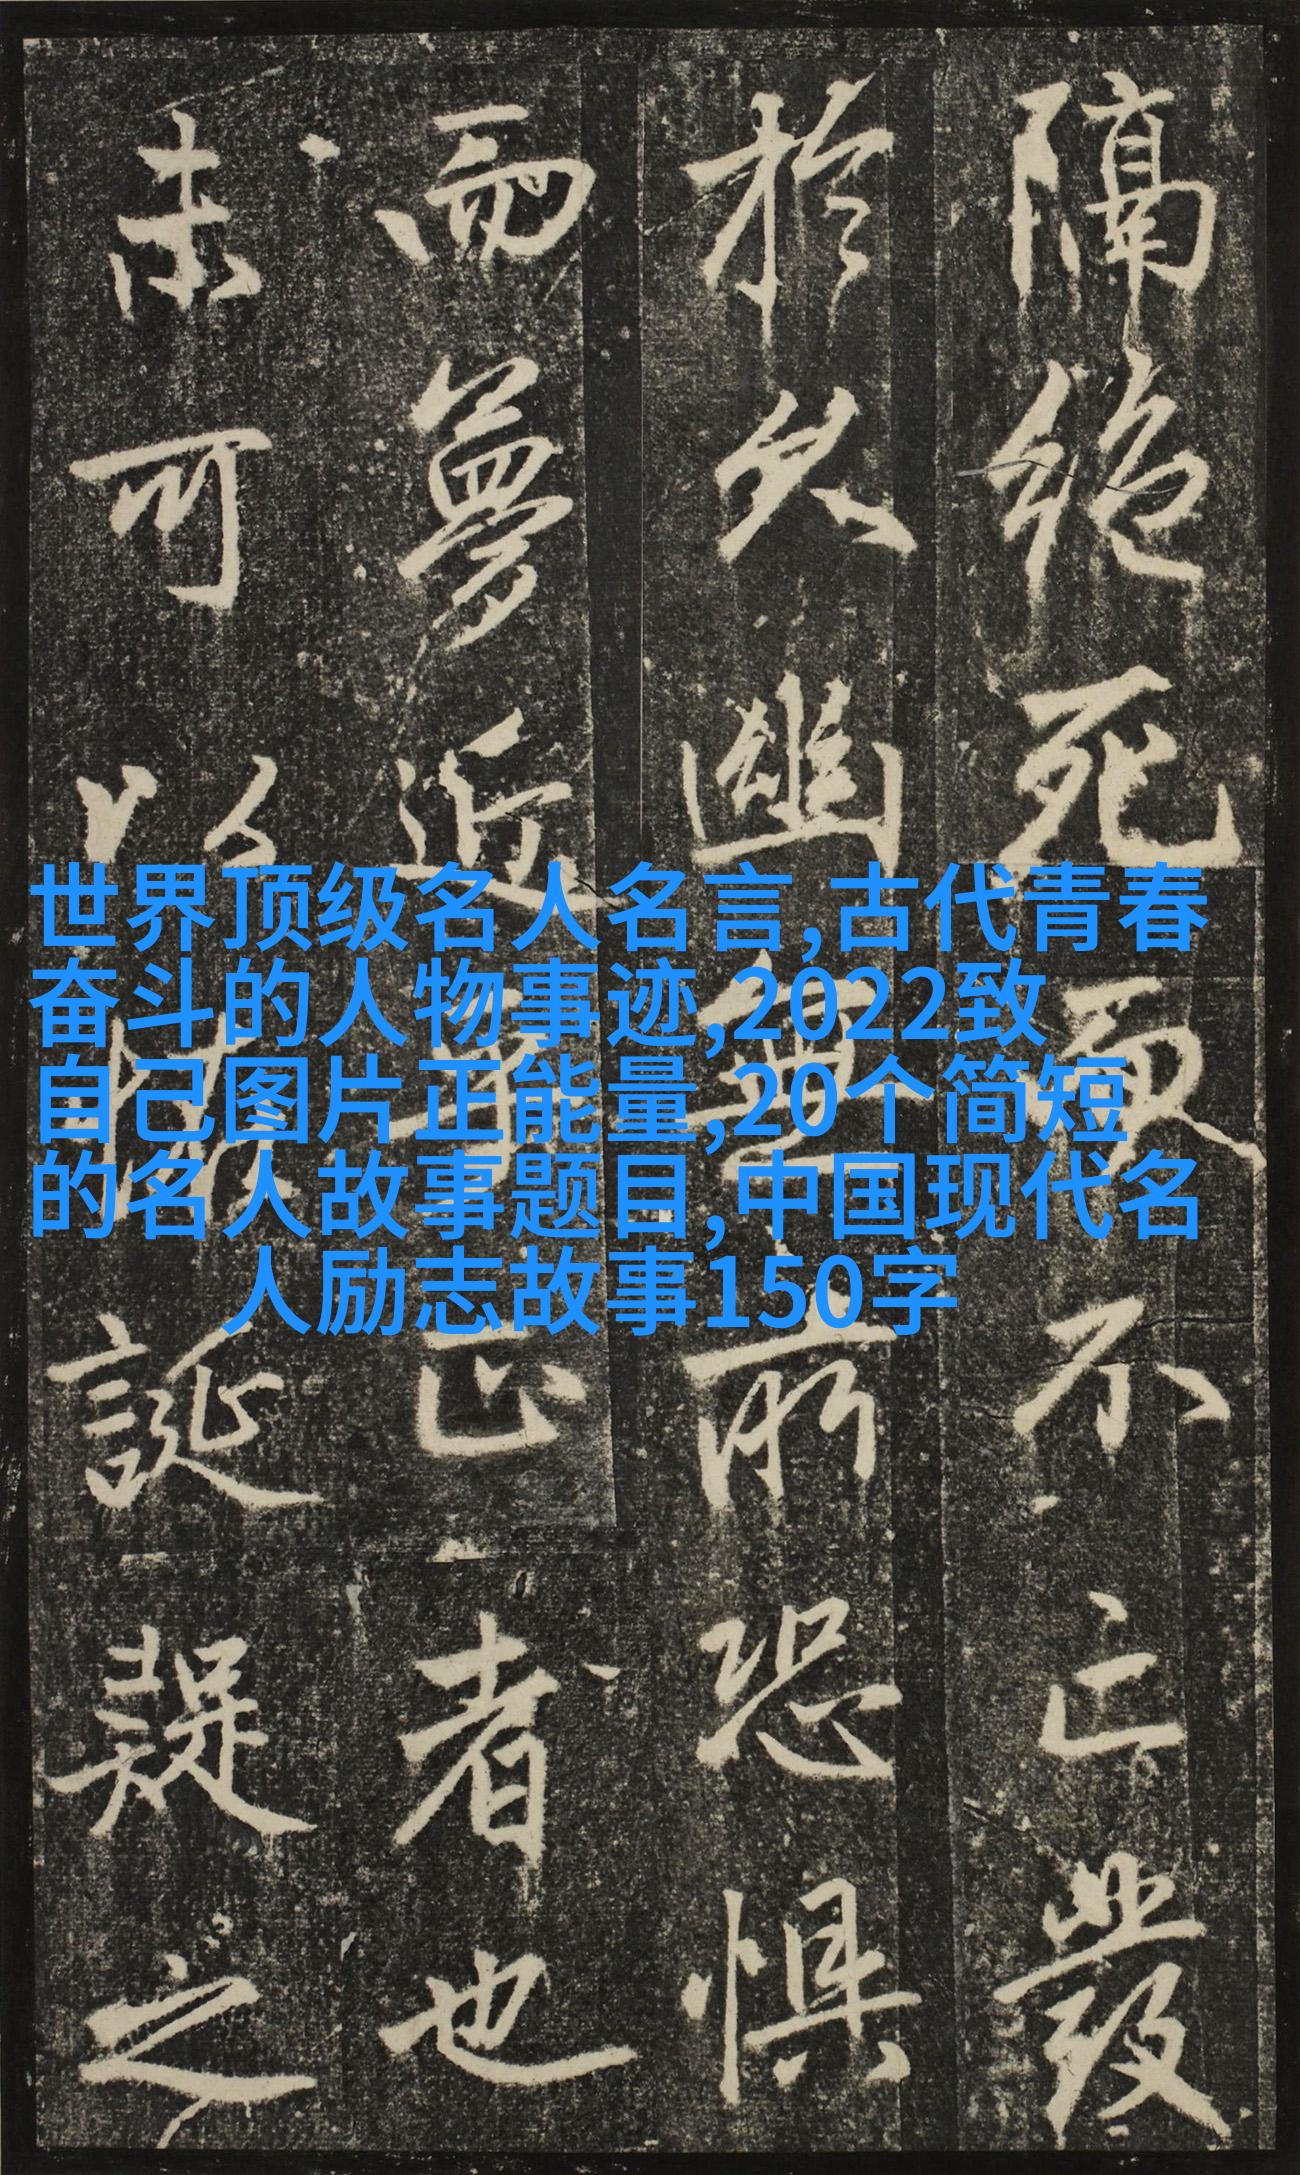 隔絶死不亡發
於久幽無所恐懼
而夢近正者也
未可以誕疑之
世界顶级名人名言,古代青春
奋斗的人物事迹,2022致
自己图片正能量,20个简短
的名人故事题目,中国现代名
人励志故事150字